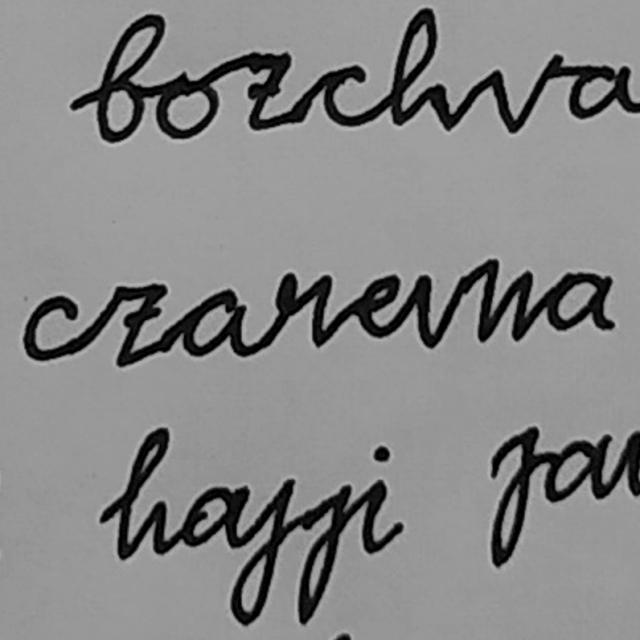 bozchva
czarevna
hajji jau